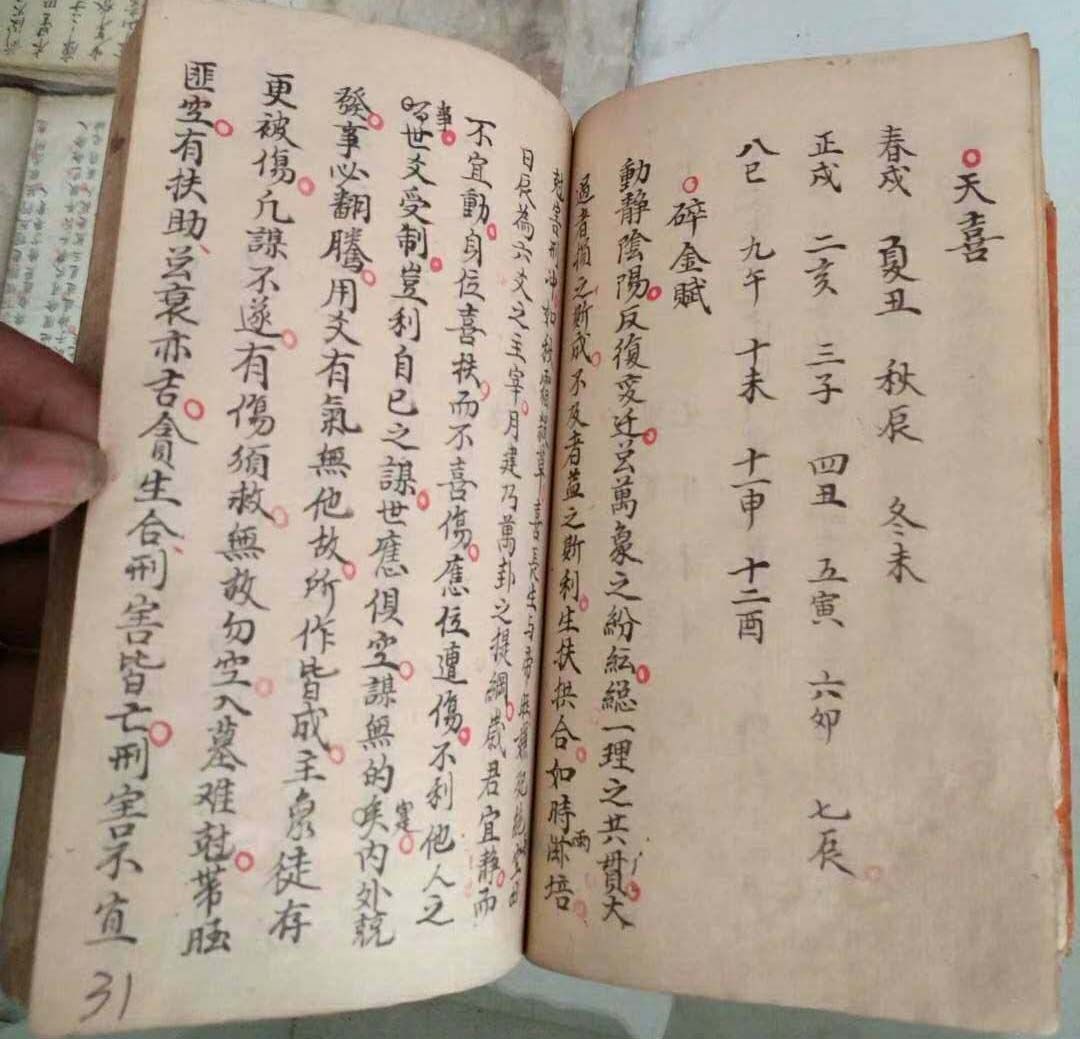 天喜
春戍 夏丑 秋辰 冬未
正戍 二亥 三子 四丑 五寅 六卯 七辰
八巳 九午 十未 十一申 十二酉
碎金賦
動静陰陽反復变迁芸萬象之紛紜縂一理之共貫大
過者損之斯成不及者益之斯利生扶拱合如時雨㴰培
日辰為六爻之主宰月建乃萬卦之提綱歲君宜静而
不宜動身位喜扶而不喜傷應位遭傷不利他人之
事世爻受制豈利自己之謀世應俱空謀無的寔内外競
發事必翻騰用爻有氣無他故所作皆成主象徒存
更被傷凢謀不遂有傷須救無故勿空入墓难尅帯旺
匪空有扶助衰亦吉貪生合刑害皆亡刑害不宜
31